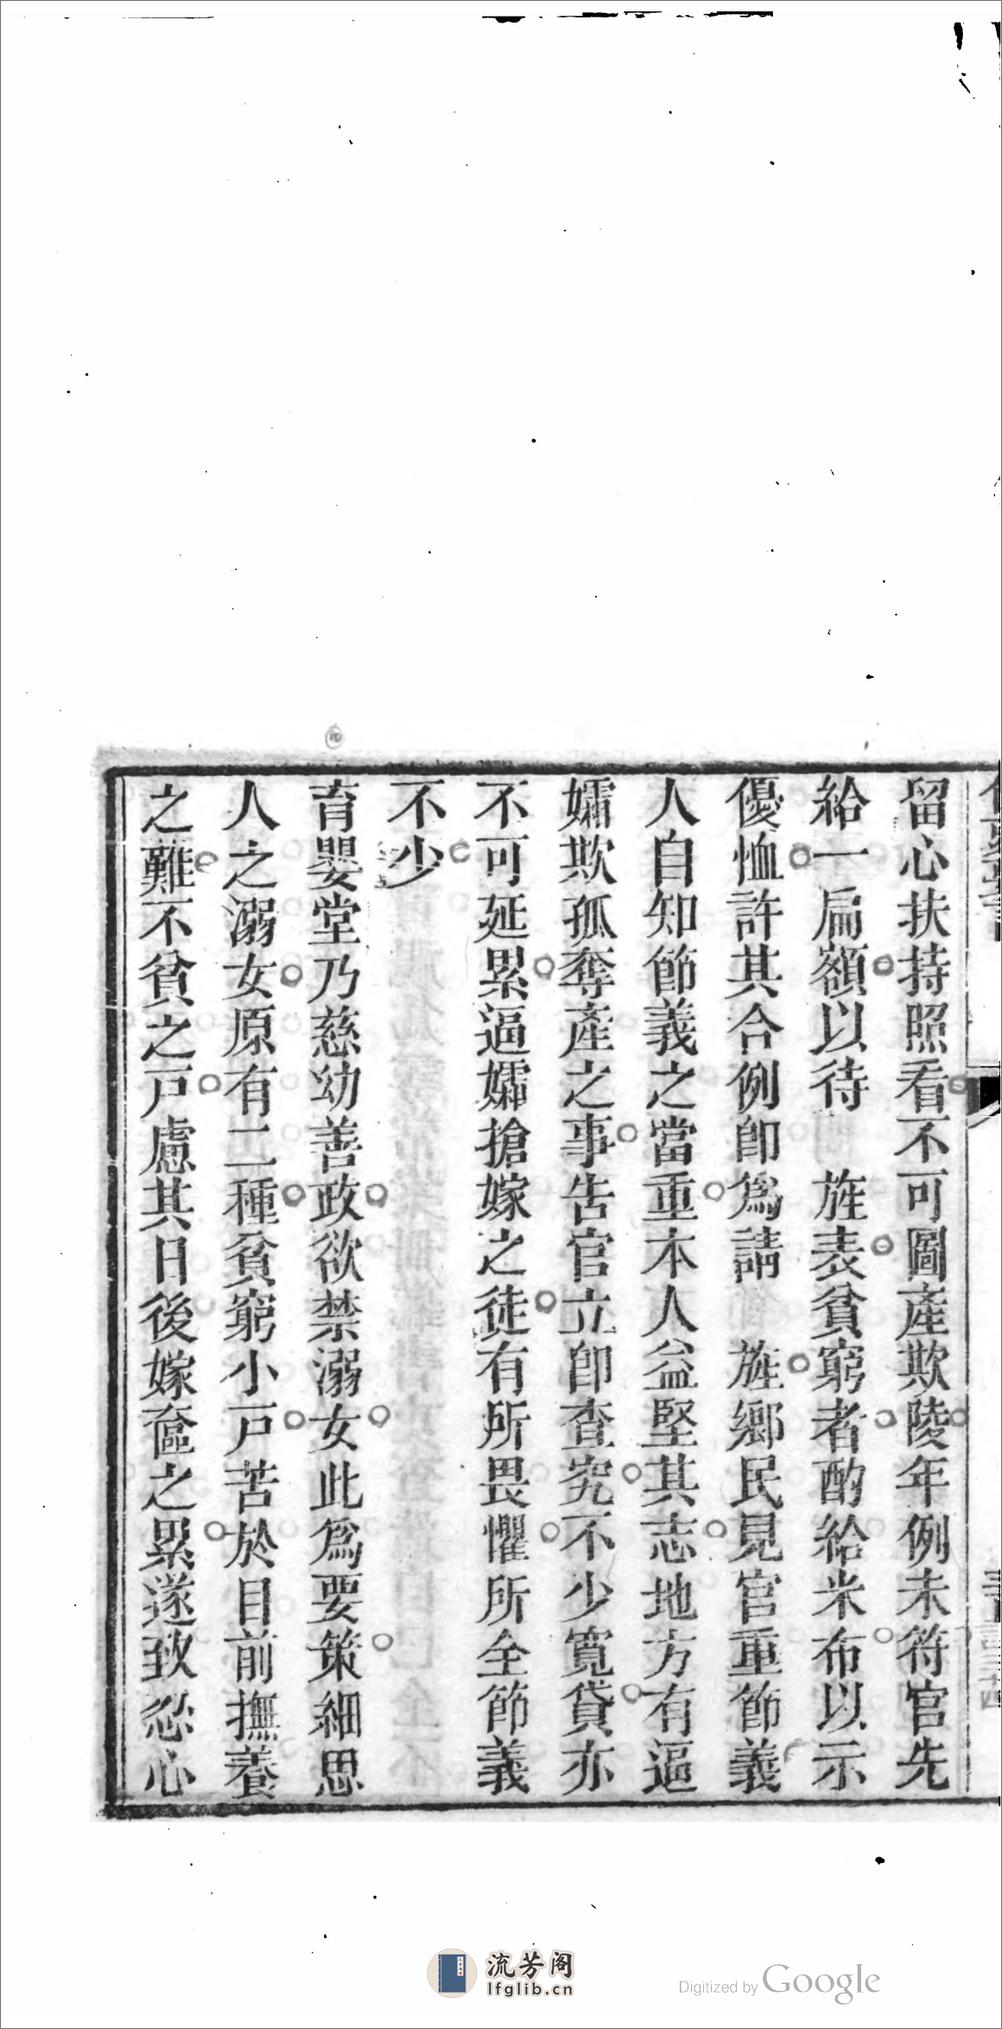 留心扶持照看不可圖產欺陵年例未符官先
給一扁額以待　旌表貧窮者酌給米布以示
優恤許其合例卽爲請　旌鄉民見官重節義
人自知節義之當重本人益堅其志地方有逼
孀欺孤奪產之事告官立卽查究不少寬貸亦
不可延累逼孀搶嫁之徒有所畏懼所全節義
不少
育嬰堂乃慈幼善政欲禁溺女此爲要策細思
人之溺女原有二種貧窮小戸苦於目前撫養
之難不貧之戸慮其日後嫁奩之累遂致忍心
流芳阁
lfglib.cn
Digitized by Google